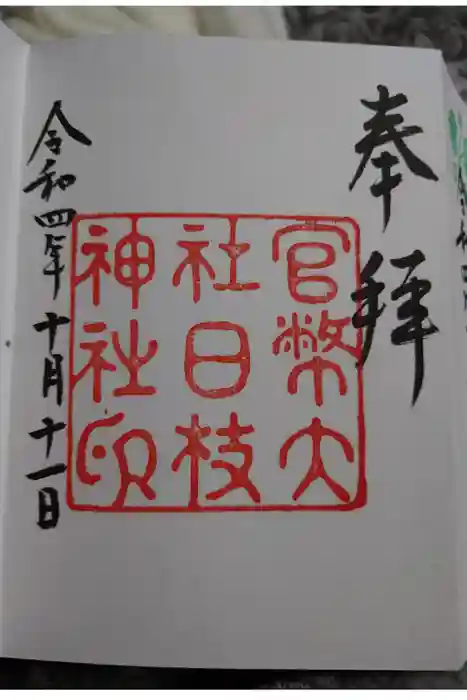 奉拝
官幣大
社日枝
神社印
令和四年十月十一日